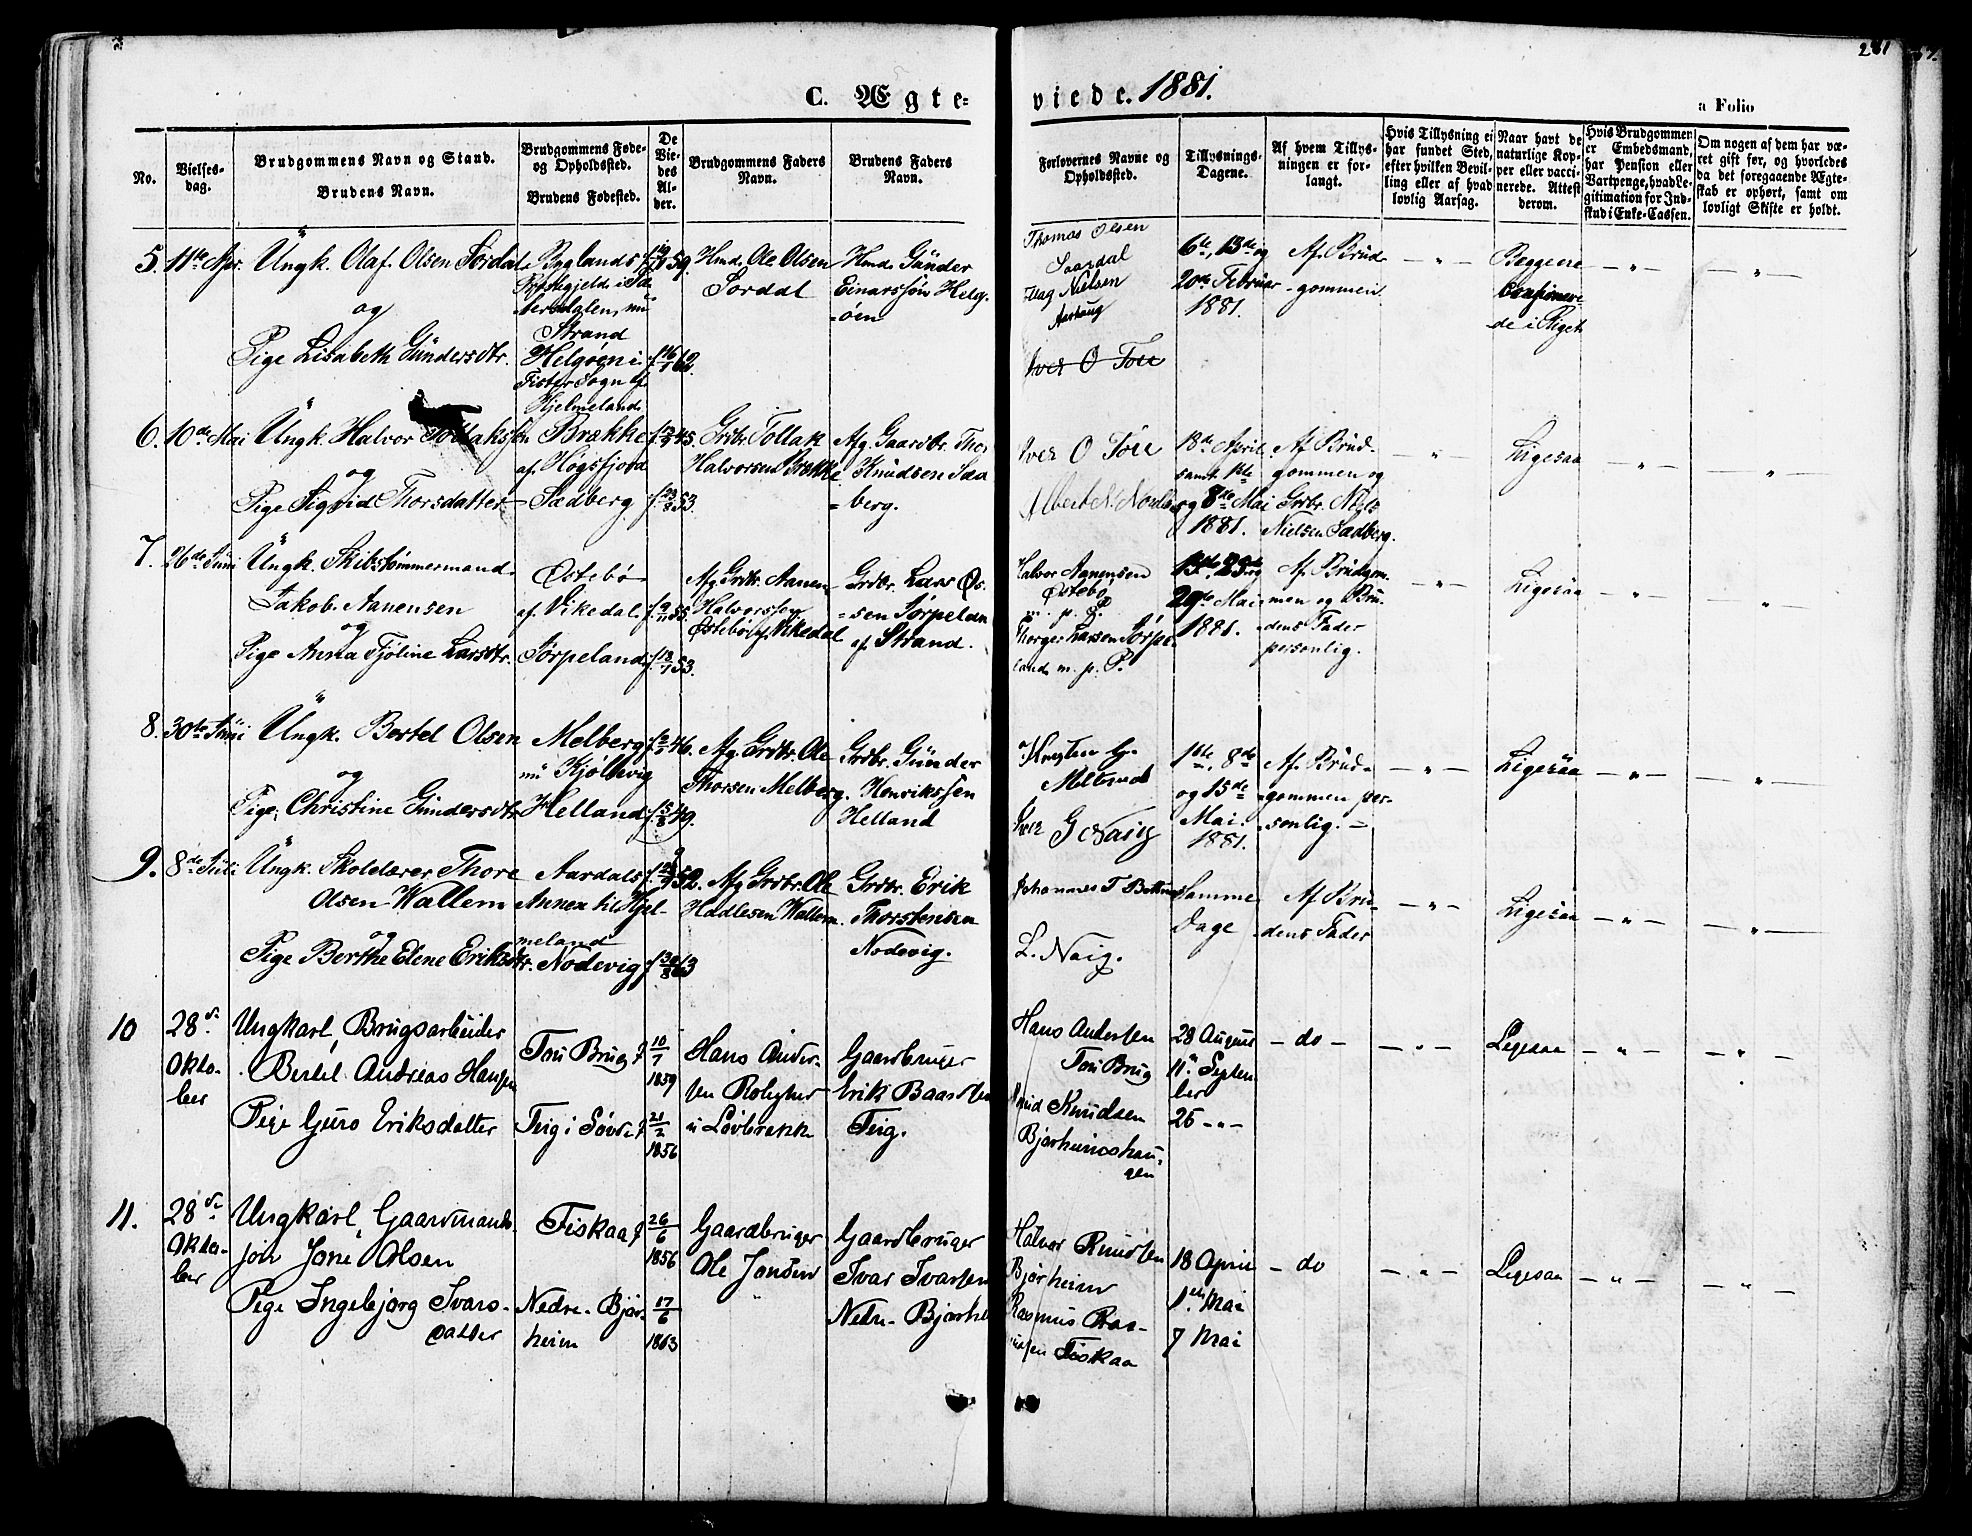 281
C. Ægte-
viede. 1881.
a Folio
No.
Vielses-
dag.
Brudgommens Navn og Stand.
Brudens Navn.
Brudgommens Føde-
og Opholdssted.
Brudens Fødested.
De
Vie-
des
Al-
der.
Brudgommens Faders
Navn.
Brudens Faders
Navn.
Forlovernes Navne og
Opholdssted.
Tillysnings-
Dagene.
Af hvem Tillys-
ningen er for-
langt.
Hvis Tillysning ei
har fundet Sted,
efter hvilken Bevil-
ling eller af hvad
lovlig Aarsag.
Naar havt de
naturlige Kop-
per eller vacci-
nerede. Attest
derom.
Hvis Brudgommen
er Embedsmand,
har Pension eller
Vartpenge, hvad Le-
gitimation for Ind-
skud i Enke-Cassen.
Om nogen af dem har væ-
ret gift før, og hvorledes
da det foregaaende Ægte-
skab er ophørt, samt om
lovligt Skifte er holdt.
5. 11te Apr. Ungk. Olaf Olsen Sørdal
og
Pige Lisabeth Gundersdtr.
Byglands
Præstegjeld i Sæ-
tersdalen, nu
Strand
Helgøen i
Fister Sogn af
Hjelmeland.
59.
f. 16/1 62.
Hmd. Ole Olsen
Sørdal
Hmd. Gunder
Einarssøn Helg-
øen
Thomas Olsen
Saardal
Aarhaug
Iver O Tøu
6te, 13de og
20de Februar
1881.
Af Brud-
gommen
Beggeere
de i Riget
6. 10de Mai Ungk. Halvor Tollaksen
og
Pige Sigrid Thorsdatter
Brække
af Høgsfjord
Sædberg
45.
53.
Grdbr. Tollak
Halvorsen Brække
Afg. Gaardbr. Thor
Knudsen Sæd-
berg.
Iver O Tøu
18de April
samt 1ste
og 8de Mai
1881.
Af Brud-
gommen og
Grbr. Niels
Nielsen Sædberg.
Ligesaa
7. 26de Juni Ungk. Skibstømmermand
Jakob Aanensen
og
Pige Anna Tjøline Larsdtr.
Østebø
af Vikedal.
Jørpeland
f. 9/11 55.
53.
Afg. Grdbr. Aanen
Halvorssen
Østebø af Vikedal
Grdbr. Lars Ol-
sen Jørpeland
af Strand.
Halvor Aanensen
Østebø
m. p. P.
Thorger Larsen Jørpe-
land m. p. P.
29de Mai
1881.
Af Brudgom-
men og Bru-
dens Fader
personlig.
Ligesaa
8. 30te Juni Ungk. Bertel Olsen
og
Pige Christine Gundersdtr.
Melberg
nu Kjølevig
Helland
46.
f. 15/8 49.
Afg. Grdbr. Ole
Thorsen Melberg.
Grdbr. Gunder
Henrikssen
Helland
Iver G Naig
1ste, 8de
og 15de
Mai
1881.
Af Brud-
gommen per-
sonlig.
Ligesaa
9. 8de Juli Ungk. Skolelærer Thore
Olsen Wallem
og
Pige Berthe Elene Eriksdtr.
Aardals
Annex til Hjel-
meland
Nodevig
52.
f. 30/8 63
Afg. Grdbr. Ole
Hadlesen Wallem.
Grdbr. Erik
Thorstensen
Nodevig.
L. Naig.
Samme
Dage
Af Bru-
dens Fader
Ligesaa
10 28de
Oktober
Ungkarl, Brugsarbeider
Bertel Andreas Hansen
Pige Guro Eriksdatter
Tou Brug
Teig i Søvde
10/7
1859
21/2
1856
Hans Ander-
sen
Gaardbruger
Erik Baardsen
Teig.
Hans Andersen
Tou Brug
Knudsen
Bjørheimshau-
gen
28 August
11te Septem-
ber
25 - " -
- do -
Ligesaa
11. 28de
Oktober
Ungkarl, Gaardmands-
søn Jone Olsen
Pige Ingebjørg Ivars-
datter
Fiskaa
Nedre-Bjør-
heim
26/6
1856
17/6
1863
Gaardbruger
Ole Jonsen
Gaardbruger
Ivar Ivarsen
Nedre-Bjørheim
Halvor Knudsen
Bjørheim
Rasmus Ras-
mussen Fiskaa
18 April
1ste Mai
7 Mai
- do
Ligesaa